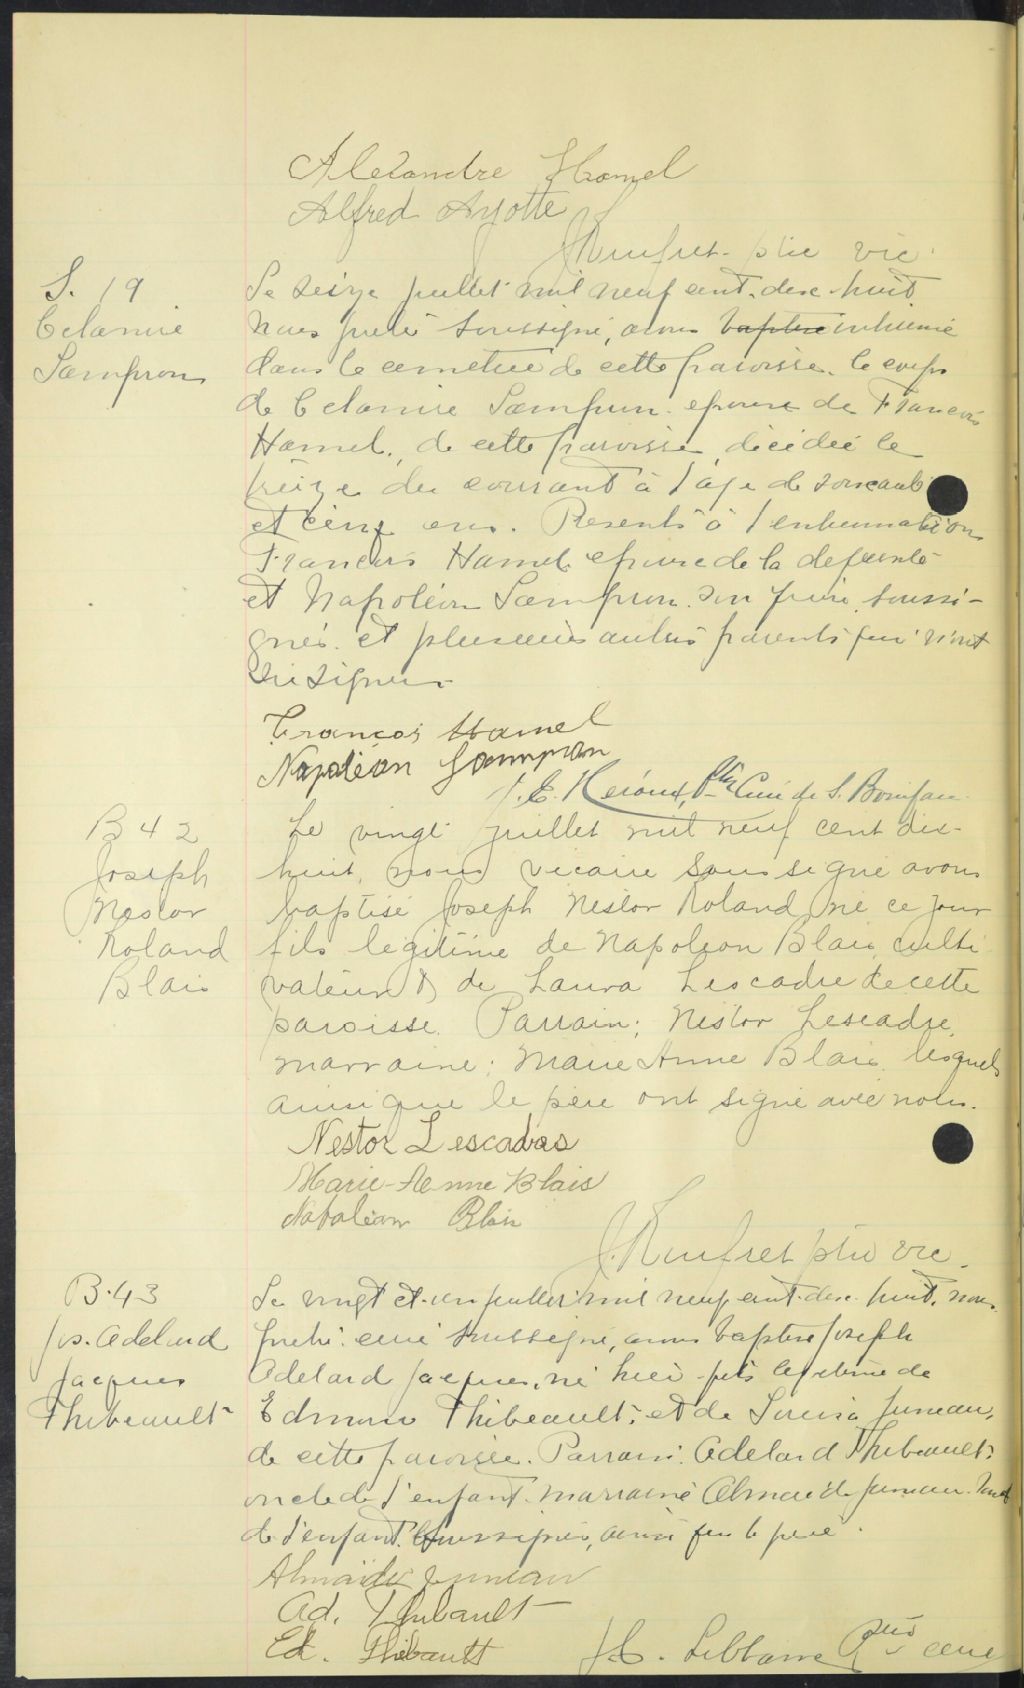 Alexandre Hamel
Alfred Ayotte
J Renfret ptre vic.
S. 19
Celanire
Sampron
Le seize juillet mil neuf cent dix-huit
Nous prêtre soussigné, avons baptise inhumé
dans le cimetière de cette paroisse le corps
de Celanire Sampron épouse de François
Hamel, de cette paroisse, décédée le
treize du courant à l'age de soixante
et cinq ans. Présents à l'enhumation
François Hamel époux de la defunte
et Napoléon Sampron son frère soussi-
gnés et plusieurs autres parents qui n'ont
su signer
François Hamel
Napoléan Sampron
J. E. Heroux, Ptre Curé de S. Boniface
B 42
Joseph
Nestor
Roland
Blais
Le vingt juillet mil neuf cent dix-
huit, nous vicaire soussigné avons
baptisé Joseph Nestor Roland né ce jour
fils légitime de Napoléon Blais culti
vateur & de Laura Lescadre de cette
paroisse. Parrain; Nestor Lescadre,
marraine; Marie Anne Blais lesquels
ainsi que le père ont signé avec nous.
Nestor Lescadres
Marie-Anne Blais
Napoléan Blais
J. Renfret ptre vic.
B. 43
Jos. Adelard
Jacques
Thibeault
Le vingt et un juillet mil neuf cent dix huit, nous
prêtre curé soussigné, avons baptisé Joseph
Adelard Jacques, né hier fils légitime de
Edmond Thibeault et de Louisa Juneau,
de cette paroisse. Parrain: Adelard Thibeault
oncle de l'enfant marraine Almaïde Juneau
de l'enfant soussignés, ainsi que le père.
Almaïde Juneau
Ad. Thibault
Ed. Thibault
Ptre curé